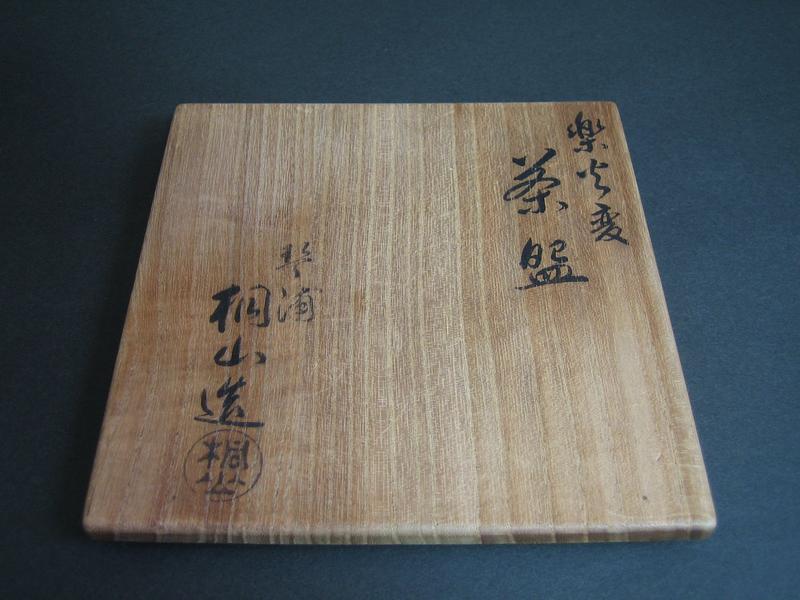 楽火変
茶盌
琴浦
桐山造
桐山